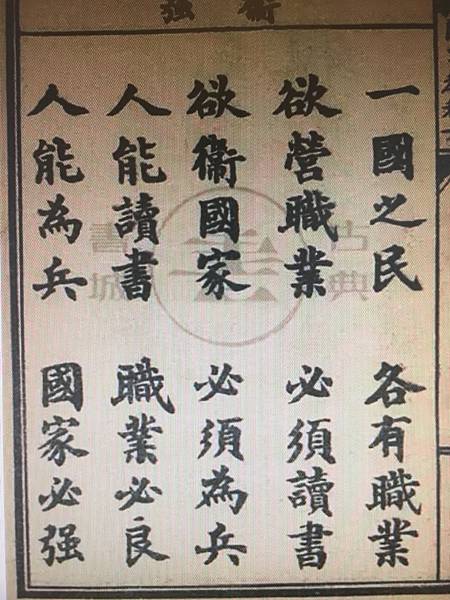 一國之民　各有職業
欲營職業　必須讀書
欲衞國家　必須為兵
人能讀書　職業必良
人能為兵　國家必强
古典
書城